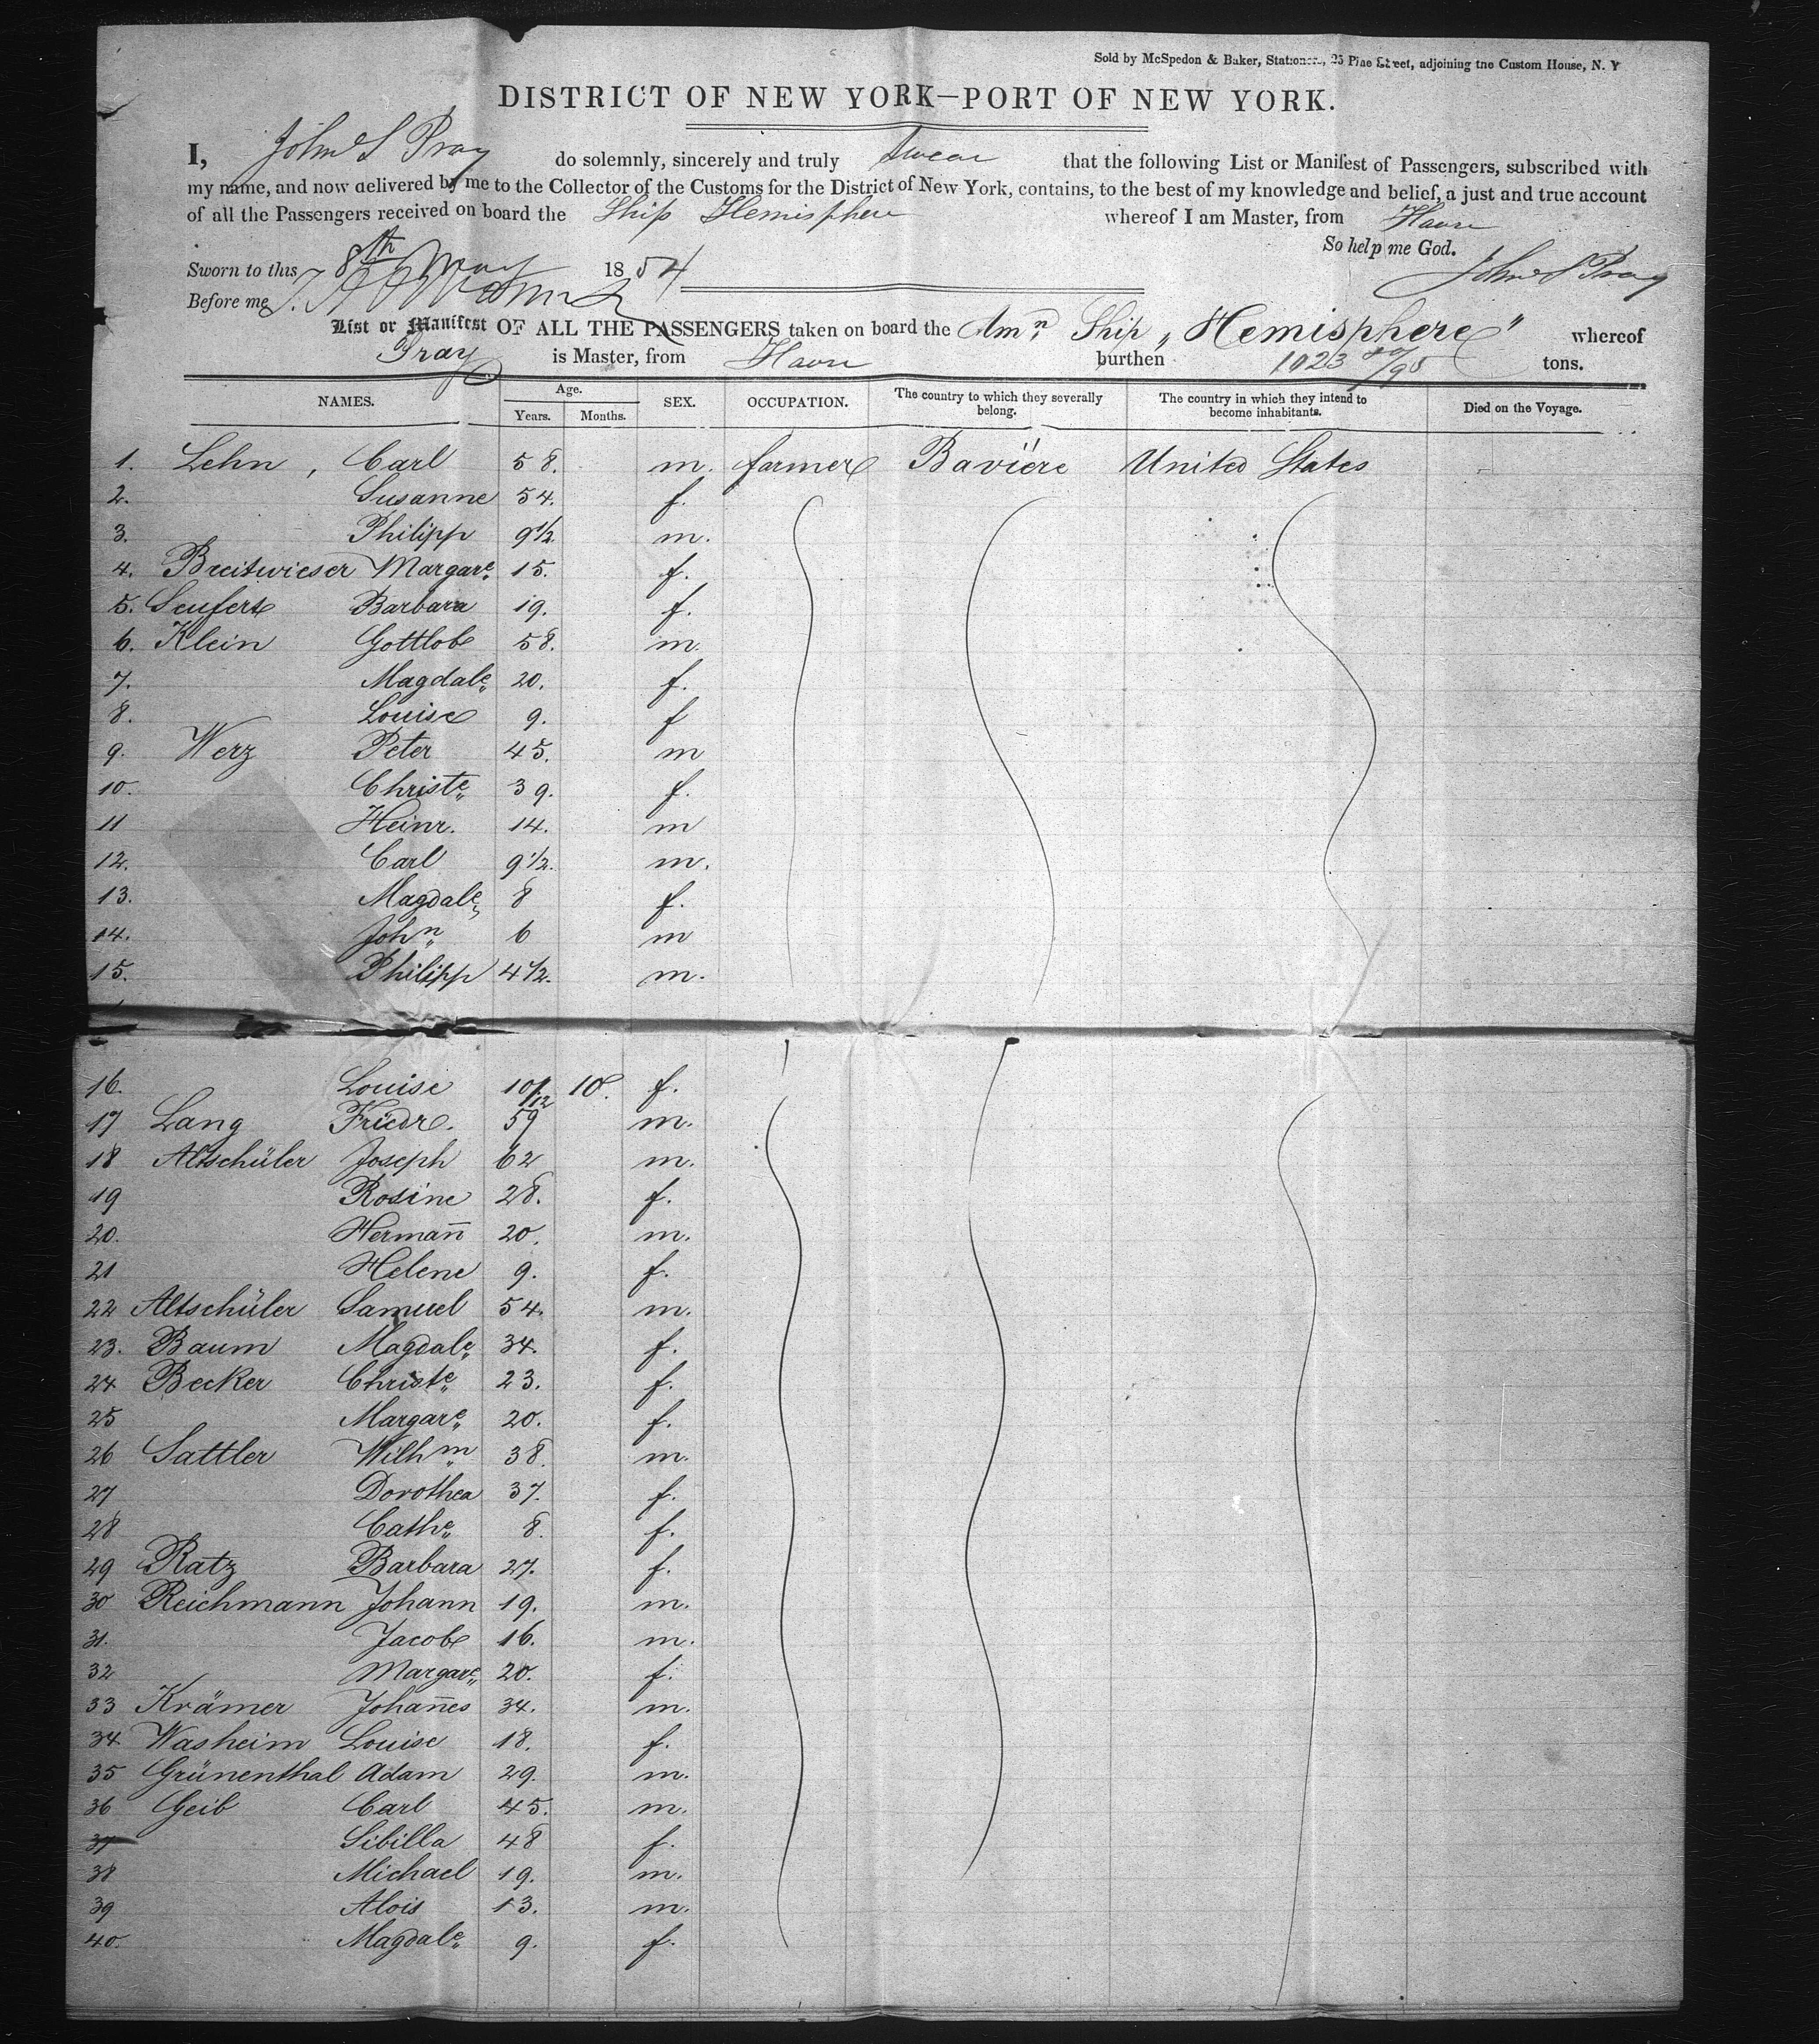 Sold by McSpedon & Baker, Stationers, 25 Pine Street, adjoining the Custom House, N. Y
DISTRICT OF NEW YORK—PORT OF NEW YORK.
I, John S Pray do solemnly, sincerely and truly Swear that the following List or Manifest of Passengers, subscribed with
my name, and now delivered by me to the Collector of the Customs for the District of New York, contains, to the best of my knowledge and belief, a just and true account
of all the Passengers received on board the Ship Hemisphere whereof I am Master, from Havre
So help me God.
Sworn to this 8th May 1854 John S Pray
Before me
List or Manifest OF ALL THE PASSENGERS taken on board the Amn Ship „Hemisphere" whereof
Pray is Master, from Havre burthen 1023 /95 tons.
NAMES. Age. Years. Months. SEX. OCCUPATION. The country to which they severally belong. The country in which they intend to become inhabitants. Died on the Voyage.
1. Lehn, Carl 58. m. farmer Bavière United States
2. Susanne 54. f.
3. Philipp 9½. m.
4. Breitwieser Margare. 15. f.
5. Seufert Barbara 19. f.
6. Klein Gottlob 58. m.
7. Magdale. 20. f.
8. Louise 9. f
9. Werz Peter 45. m
10. Christe. 39. f.
11 Heinr. 14. m
12. Carl 9½. m.
13. Magdale. 8 f.
14. John 6 m
15. Philipp 4½. m.
16. Louise 10/12 10. f.
17 Lang Friedr. 59 m.
18 Altschüler Joseph 62 m.
19 Rosine 28. f.
20. Hermañ 20. m.
21 Helene 9. f.
22 Altschüler Samuel 54. m.
23. Baum Magdale. 34. f.
24 Becker Christe. 23. f.
25 Margare. 20. f.
26 Sattler Wilhm 38. m.
27 Dorothea 37. f.
28 Cathe. 8. f.
29 Ratz Barbara 27. f.
30 Reichmann Johann 19. m.
31. Jacob 16. m.
32 Margare. 20. f.
33 Krämer Johañes 34. m.
34 Washeim Louise 18. f.
35 Grünenthal Adam 29. m.
36 Geib Carl 45. m.
37 Sibilla 48 f.
38 Michael 19. m.
39 Alois 13. m.
40. Magdale. 9. f.